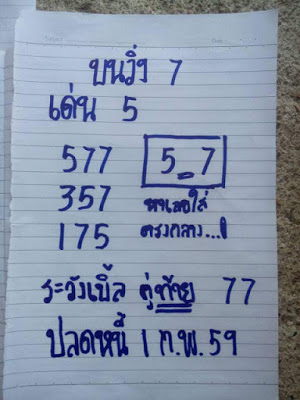 บนวิ่ง 7
เด่น 5
577
357
175
5_7
หาเลขใส่
ตรงกลาง...!
ระวังเบิ้ล คู่ท้าย 77
ปลดหนี้ 1 ก.พ. 59